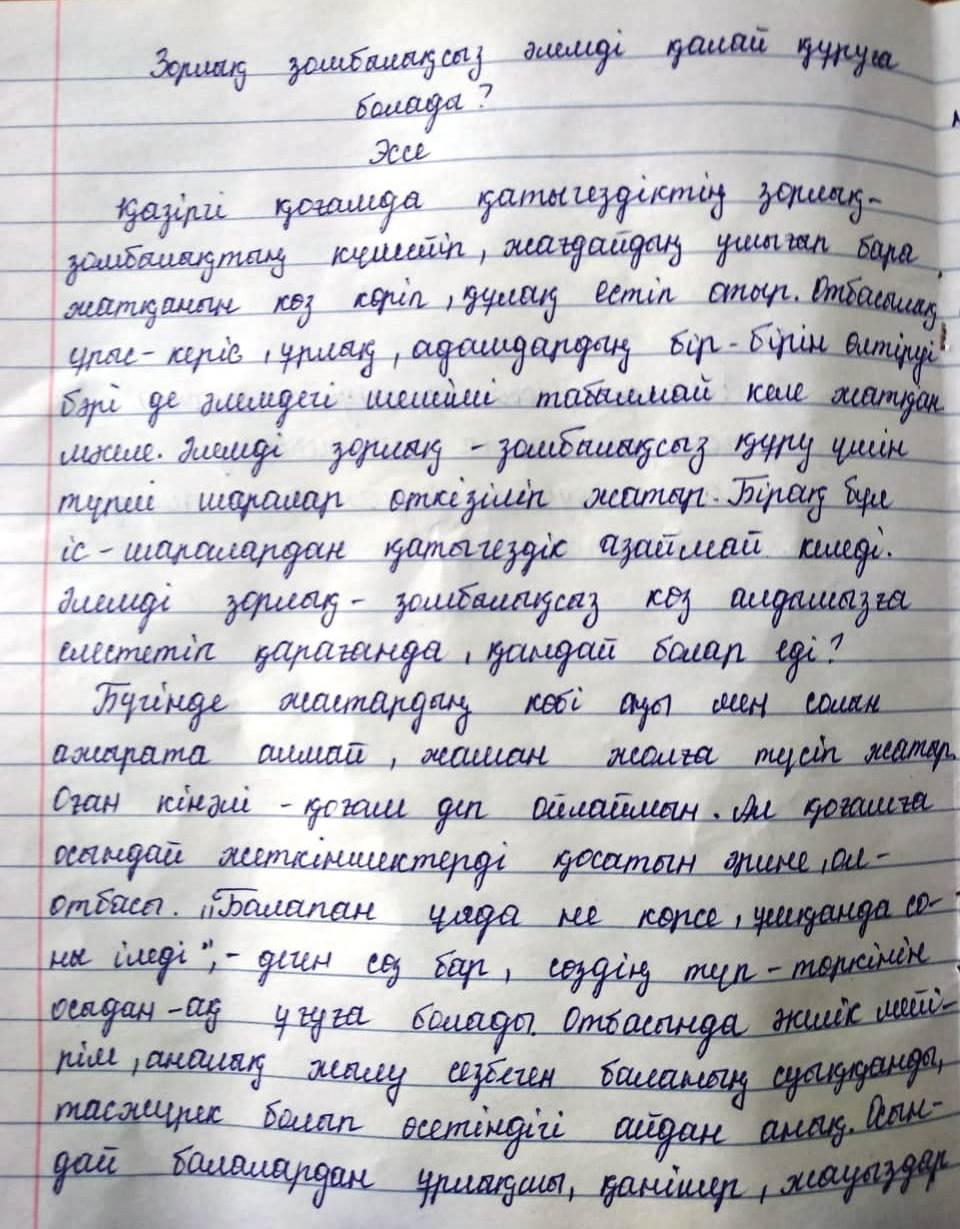 Зорлық зомбалықсыз әлемді қалай құруға
болады?
Эссе
Қазіргі қоғамда қатыгездіктің зорлық-
зомбалықтың күшейіп, жағдайдың ушығып бара
жатқанын көз көріп, құлақ естіп отыр. Отбасылық
ұрыс-керіс, ұрлық, адамдардың бір-бірін өлтіруі
бәрі де әлемдегі шешімі табылмай келе жатқан
мәселе. Әлемді зорлық - зомбалықсыз құру үшін
түрлі шаралар өткізіліп жатыр. Бірақ бұл
іс-шаралардан қатыгездік азаймай келеді.
Әлемді зорлық - зомбалықсыз көз алдымызға
елестетіп қарағанда, қандай болар еді?
Бүгінде жастардың көбі оңы мен солын
ажырата алмай, жаман жолға түсіп жатыр.
Оған кінәлі - қоғам деп ойлаймын. Ал қоғамға
осындай жеткіншектерді қосатын әрине, ол-
отбасы. "Балапан ұяда не көрсе, ұшқанда со-
ны іледі",- деген сөз бар, сөздің түп-төркінін
осыдан-ақ ұғуға болады. Отбасында әкелік мейі-
рім, аналық жылу сезбеген баланың суыққанды,
тасжүрек болып өсетіндігі айдан анық. Осын-
дай балалардан ұрлықшы, қанішер, жауыздар